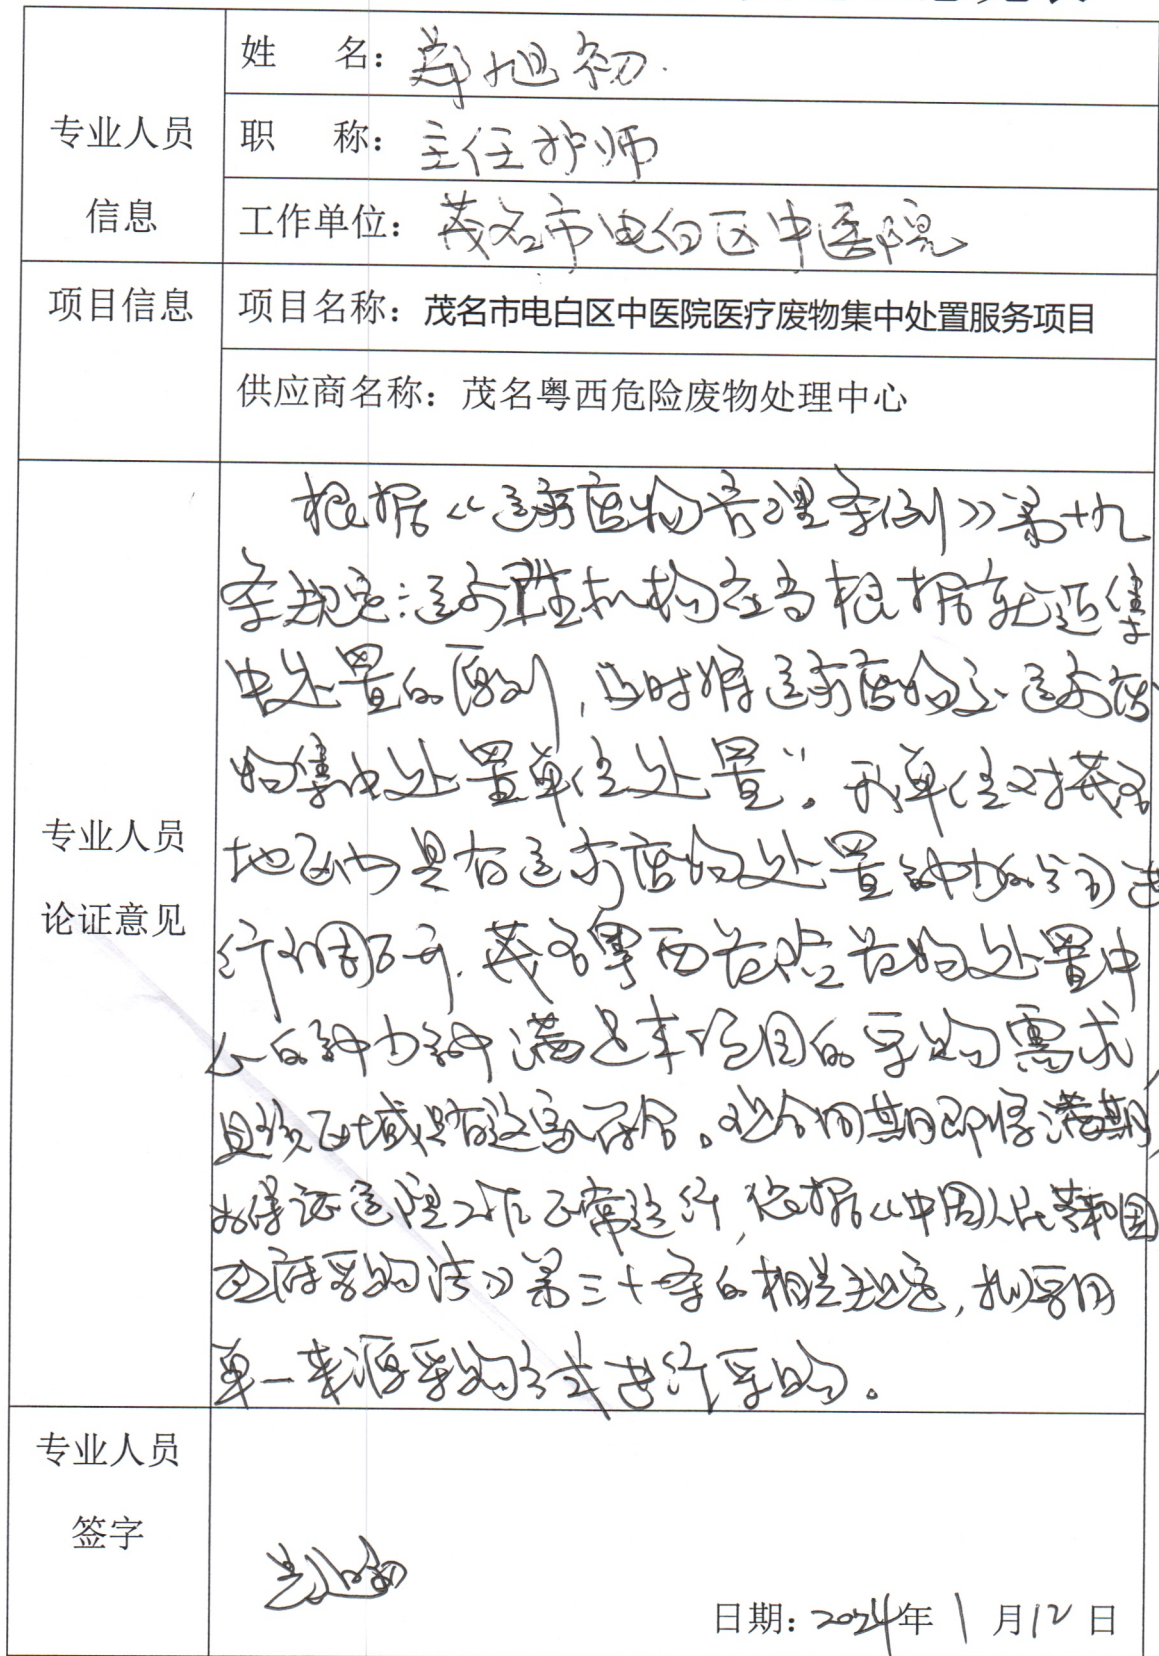 专业人员
信息
姓 名：郑旭初
职 称：主任护师
工作单位：茂名市电白区中医院
项目信息
项目名称：茂名市电白区中医院医疗废物集中处置服务项目
供应商名称：茂名粤西危险废物处理中心
专业人员
论证意见
根据《医疗废物管理条例》第十九
条规定：医疗卫生机构应当根据就近集
中处置的原则，及时将医疗废物交医疗废
物集中处置单位处置”。我单位对茂名
地区内具有医疗废物处置能力的公司进
行调研，茂名粤西危险废物处置中
心的能力能满足本项目的采购需求，
且该区域只有这家符合。现合同期即将满期，
为保证医院工作正常运行，依据《中国人民共和国
政府采购法》第三十一条的相关规定，拟采用
单一来源采购方式进行采购。
专业人员
签字
日期：2024年1月12日